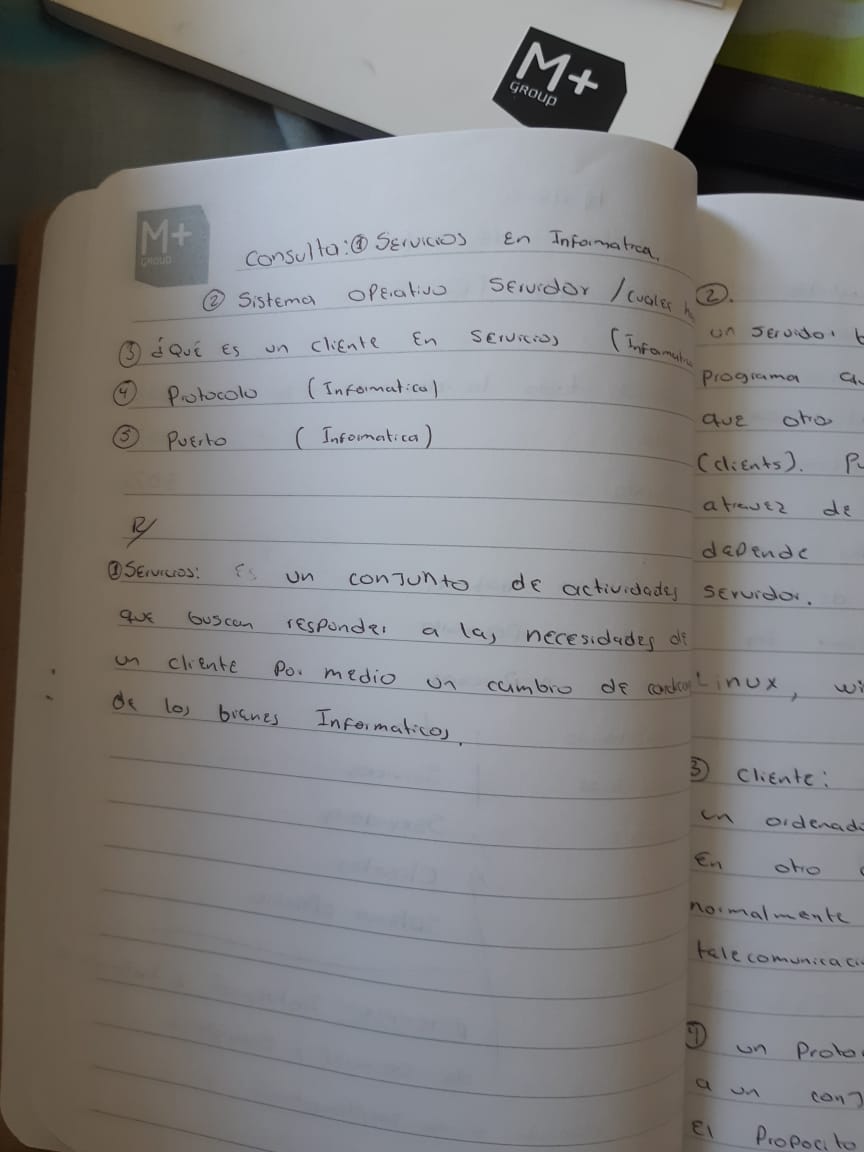 M+
GROUP
M+
GROUP
Consulta: ① Servicios En Informatica.
② Sistema Operativo Servidor / Cuales
③ ¿Qué Es un cliente En Servicios (Informatic
④ Protocolo (Informatica)
⑤ Puerto (Informatica)
R/
① Servicios: Es un conjunto de actividades
que buscan responder a las necesidades de
un cliente por medio un cambio de
de los bienes Informaticos.
②.
un servidor
programa
que otro
(clients).
atravez de
depende
servidor.
Linux, wi
③ Cliente:
un ordenad
En otro
normalmente
telecomunicaci
④ un Proto
a un conj
El Proposito